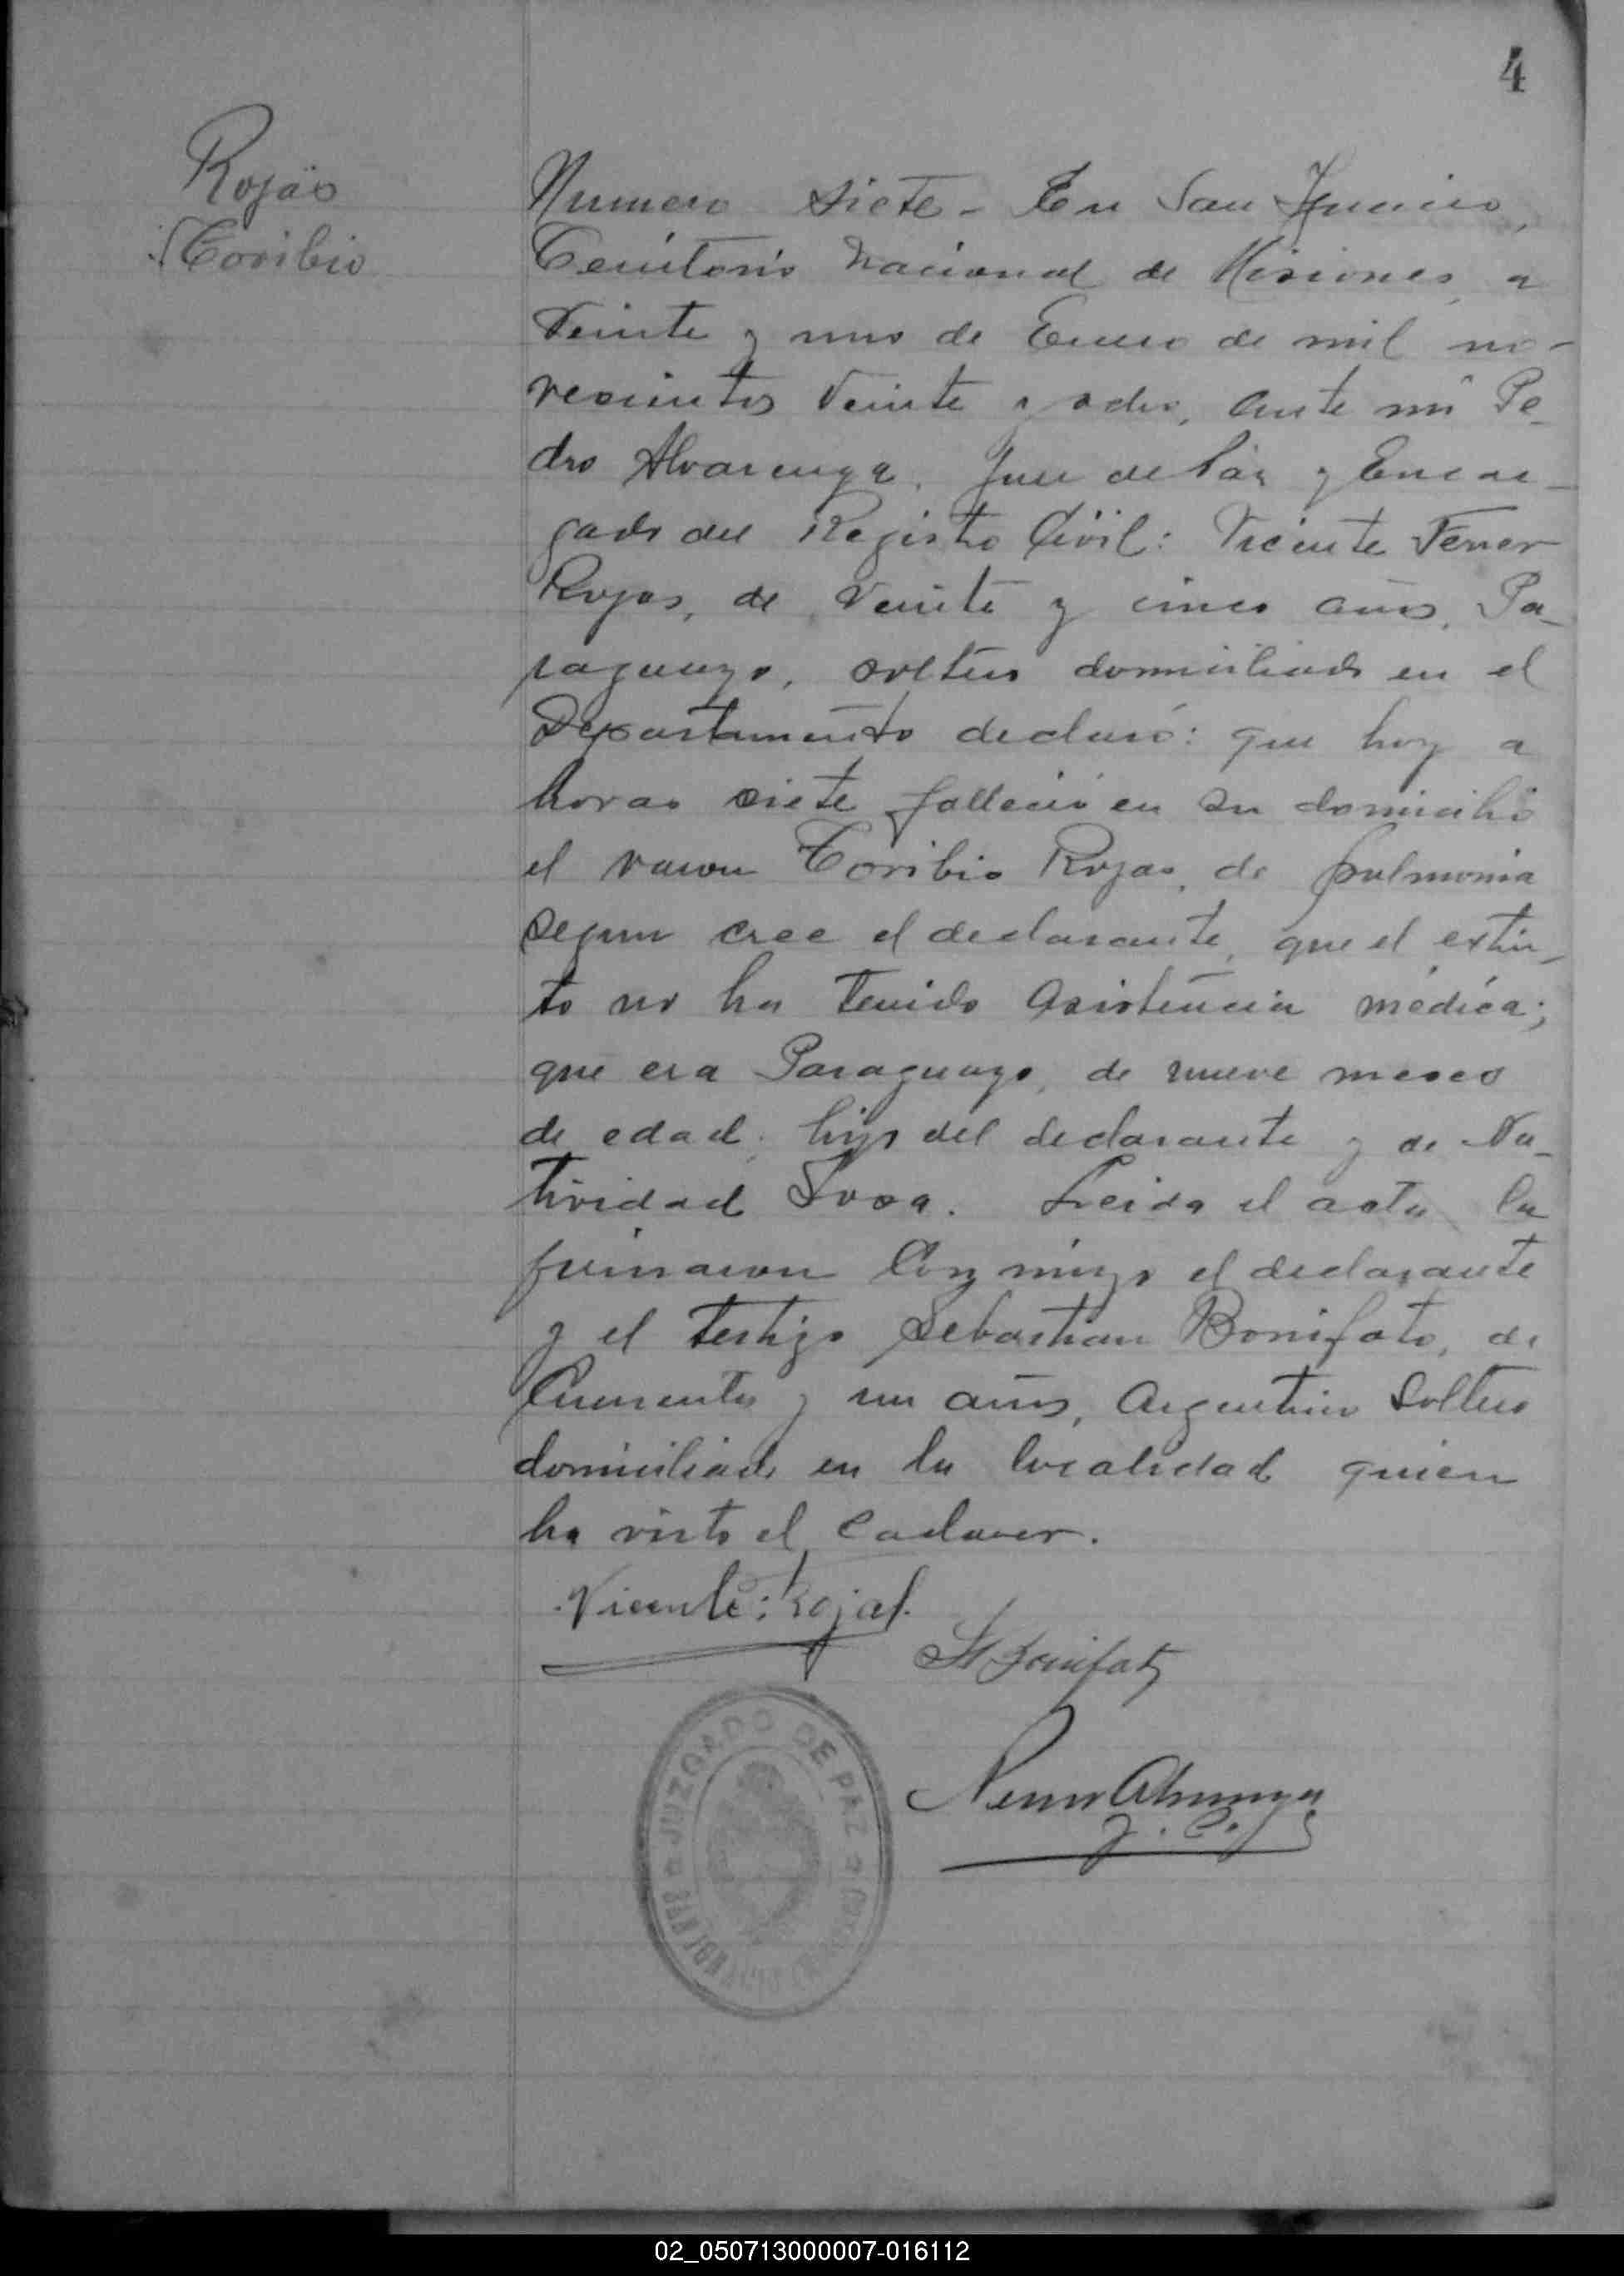 4
Rojas
Toribio
Numero siete - En San Ignacio,
Territorio Nacional de Misiones, a
Veinte y uno de Enero de mil no-
vecientos Veinte y ocho, ante mi Pe-
dro Alvarenga, Juez de Páz y Encar-
gado del Registro Civil: Vicente Ferrer
Rojas, de Veinte y cinco años, Pa-
raguayo, soltero domiciliado en el
Departamento declaró: que hoy a
horas siete falleció en su domicilio
el varon Toribio Rojas, de pulmonia
segun cree el declarante, que el extin-
to no ha tenido asistencia médica;
que era Paraguayo, de nueve meses
de edad, hijo del declarante y de Na-
tividad Sosa. Leida el acta la
firmaron Conmigo el declarante
y el testigo Sebastian Bonifato, de
Cuarenta y un años, Argentino Soltero
domiciliado en la localidad quien
ha visto el Cadaver.
Vicente: Rojas.
S Bonifato
Pedro Alvarenga
J. P.
JUZGADO DE PAZ
02_050713000007-016112